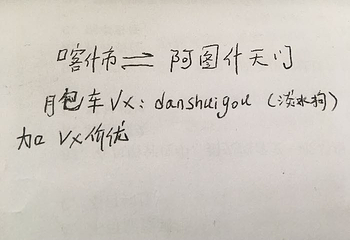 喀什市⇌阿图什天门
月包车VX:danshuigou(淡水狗)
加VX价优